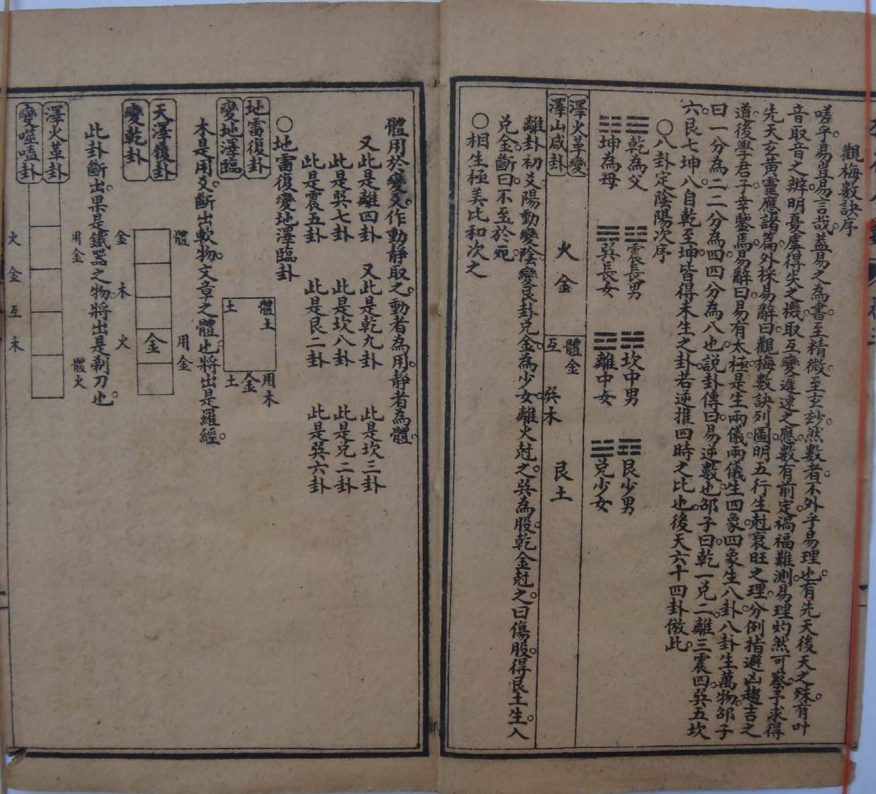 觀梅數訣序
嗟乎易豈易言哉蓋易之為書至精微至玄妙然數者不外乎易理也有先天後天之殊有叶
音取音之辨明憂虞得失之機取互變遲速之應數有前定禍福難測易理灼然可察予求得
先天玄黃靈應諸篇外採易解曰觀梅數訣列圖明五行生尅衰旺之理分例指避凶趨吉之
道後學君子幸鑒焉易解曰易有太極是生兩儀兩儀生四象四象生八卦八卦生萬物邵子
曰一分為二二分為四四分為八也說卦傳曰易逆數也邵子曰乾一兌二離三震四巽五坎
六艮七坤八自乾至坤皆得未生之卦若逆推四時之比也後天六十四卦倣此
○八卦定陰陽次序
☰乾為父 ☳震長男 ☵坎中男 ☶艮少男
☷坤為母 ☴巽長女 ☲離中女 ☱兌少女
澤火革變
澤山咸卦
火金
體金
互巽木
艮土
離卦初爻陽動變陰變艮卦兌金為少女離火尅之巽為股乾金尅之曰傷股得艮土生入
兌金斷曰不至於死
○相生極美比和次之
體用於變爻作動靜取之動者為用靜者為體
又此是離四卦 又此是乾九卦 此是坎三卦
此是巽七卦 此是坎八卦 此是兌二卦
此是震五卦 此是艮二卦 此是巽六卦
○地雷復變地澤臨卦
地雷復卦
變地澤臨
土
體土
土
金
用木
木是用爻斷出軟物文章之體也將出是羅經
天澤履卦
變乾卦
體
金
用金
金
木
火
此卦斷出果是鐵器之物將出是剃刀也
澤火革卦
變噬嗑卦
用金
體火
火
金
互
木